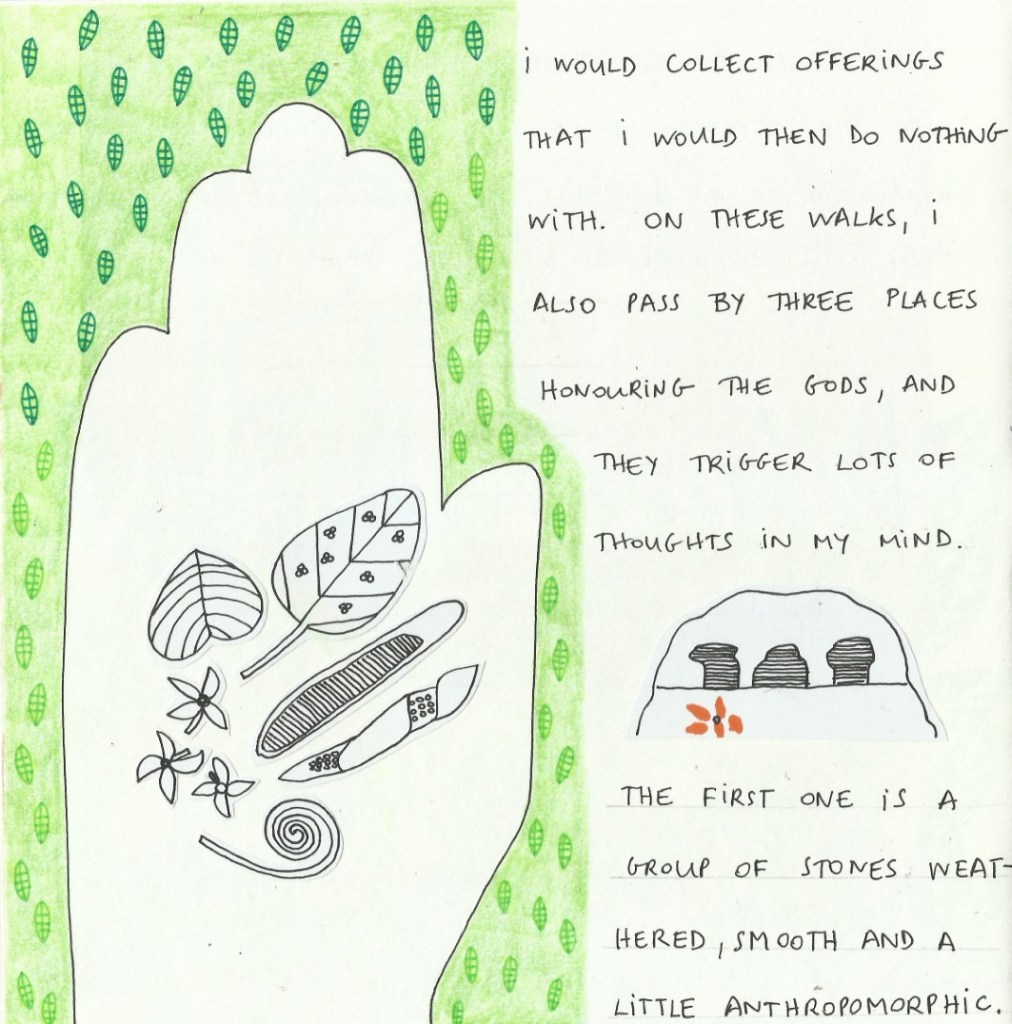 i WOULD COLLECT OFFERiNGS
THAT i WOULD THEN DO NOTHiNG
WiTH. ON THESE WALKS, i
ALSO PASS BY THREE PLACES
HONOURiNG THE GODS, AND
THEY TRiGGER LOTS OF
THOUGHTS iN MY MiND.
THE FiRST ONE iS A
GROUP OF STONES WEAT-
HERED, SMOOTH AND A
LiTTLE ANTHROPOMORPHiC.